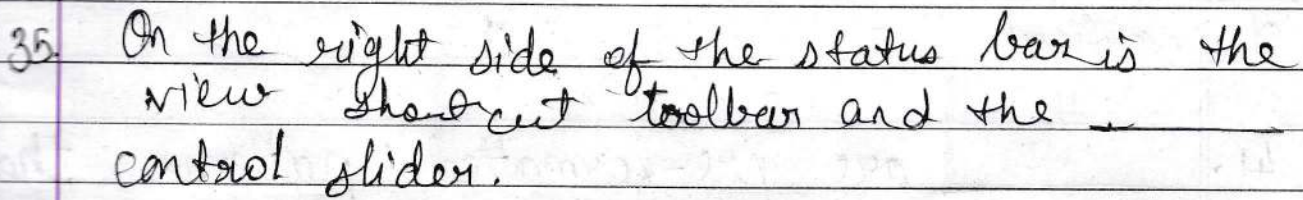 35. On the right side of the status bar is the
view shortcut toolbar and the ______
control slider.